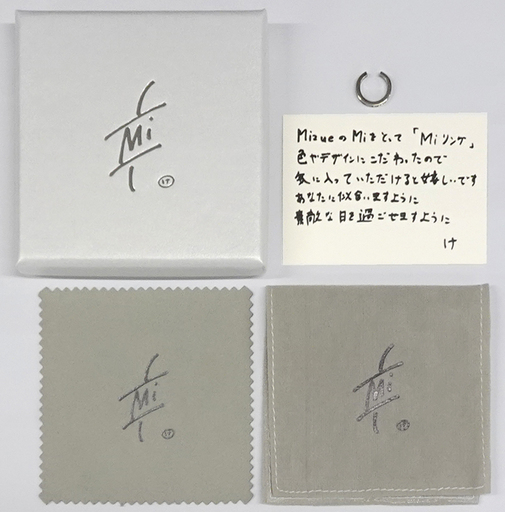 Mi
け
MizueのMiをとって「Miリング」
色やデザインにこだわったので
気に入っていただけると嬉しいです
あなたに似合いますように
素敵な日を過ごせますように
け
Mi
け
Mi
け